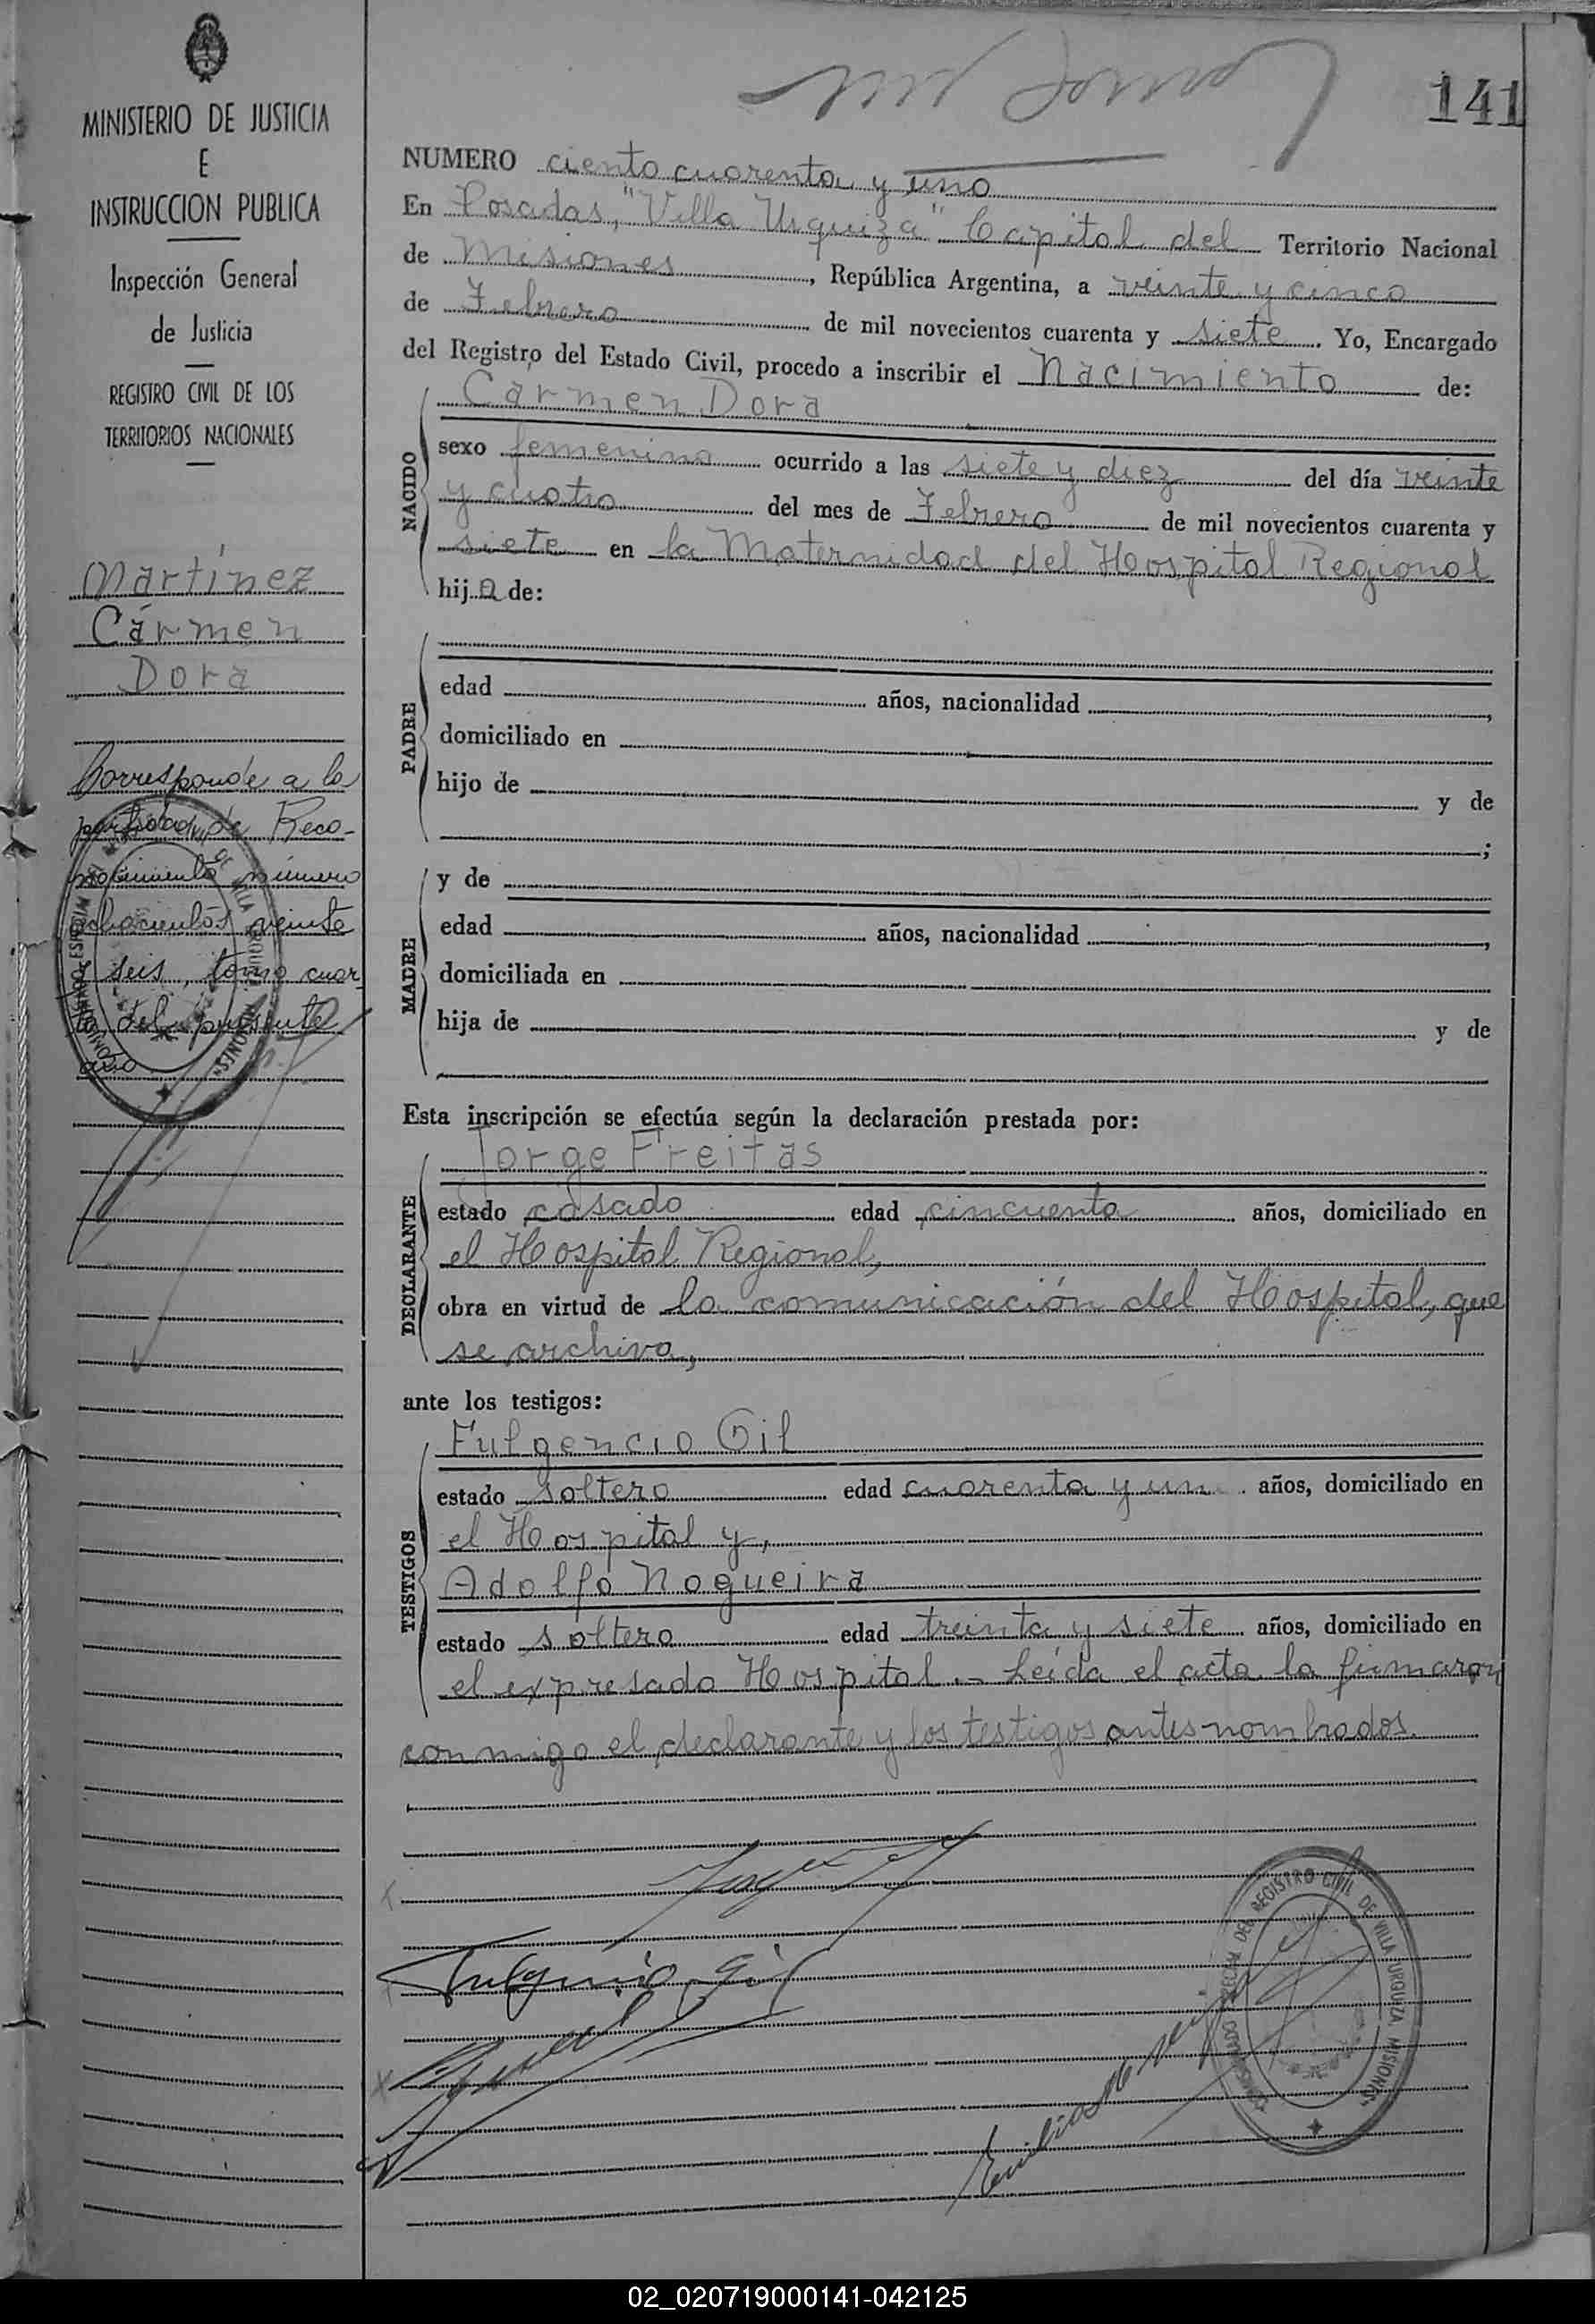 141
MINISTERIO DE JUSTICIA
E
INSTRUCCION PUBLICA
Inspección General
de Justicia
REGISTRO CIVIL DE LOS
TERRITORIOS NACIONALES
Martínez
Cármen
Dora
Corresponde a la
partida de Reco-
nocimiento número
ochocientos veinte
y seis, tomo cuar
to, del presente
año
NUMERO ciento cuarenta y uno
En Posadas, "Villa Urquiza" Capital del Territorio Nacional
de Misiones, República Argentina, a veinte y cinco
de Febrero de mil novecientos cuarenta y siete. Yo, Encargado
del Registro del Estado Civil, procedo a inscribir el Nacimiento de:
NACIDO
Cármen Dora
sexo femenino ocurrido a las siete y diez del día veinte
y cuatro del mes de Febrero de mil novecientos cuarenta y
siete en la Maternidad del Hospital Regional
hija de:
PADRE
edad años, nacionalidad ,
domiciliado en
hijo de y de
;
MADRE
y de
edad años, nacionalidad ,
domiciliada en
hija de y de
Esta inscripción se efectúa según la declaración prestada por:
DECLARANTE
Jorge Freitas
estado casado edad cincuenta años, domiciliado en
el Hospital Regional,
obra en virtud de la comunicación del Hospital, que
se archiva,
ante los testigos:
TESTIGOS
Fulgencio Gil
estado soltero edad cuarenta y un años, domiciliado en
el Hospital y,
Adolfo Nogueira
estado soltero edad treinta y siete años, domiciliado en
el expresado Hospital.- Leída el acta la firmaron
conmigo el declarante y los testigos antes nombrados.
Fulgencio Gil
DEL REGISTRO CIVIL DE VILLA URQUIZA, MISIONES
02_020719000141-042125